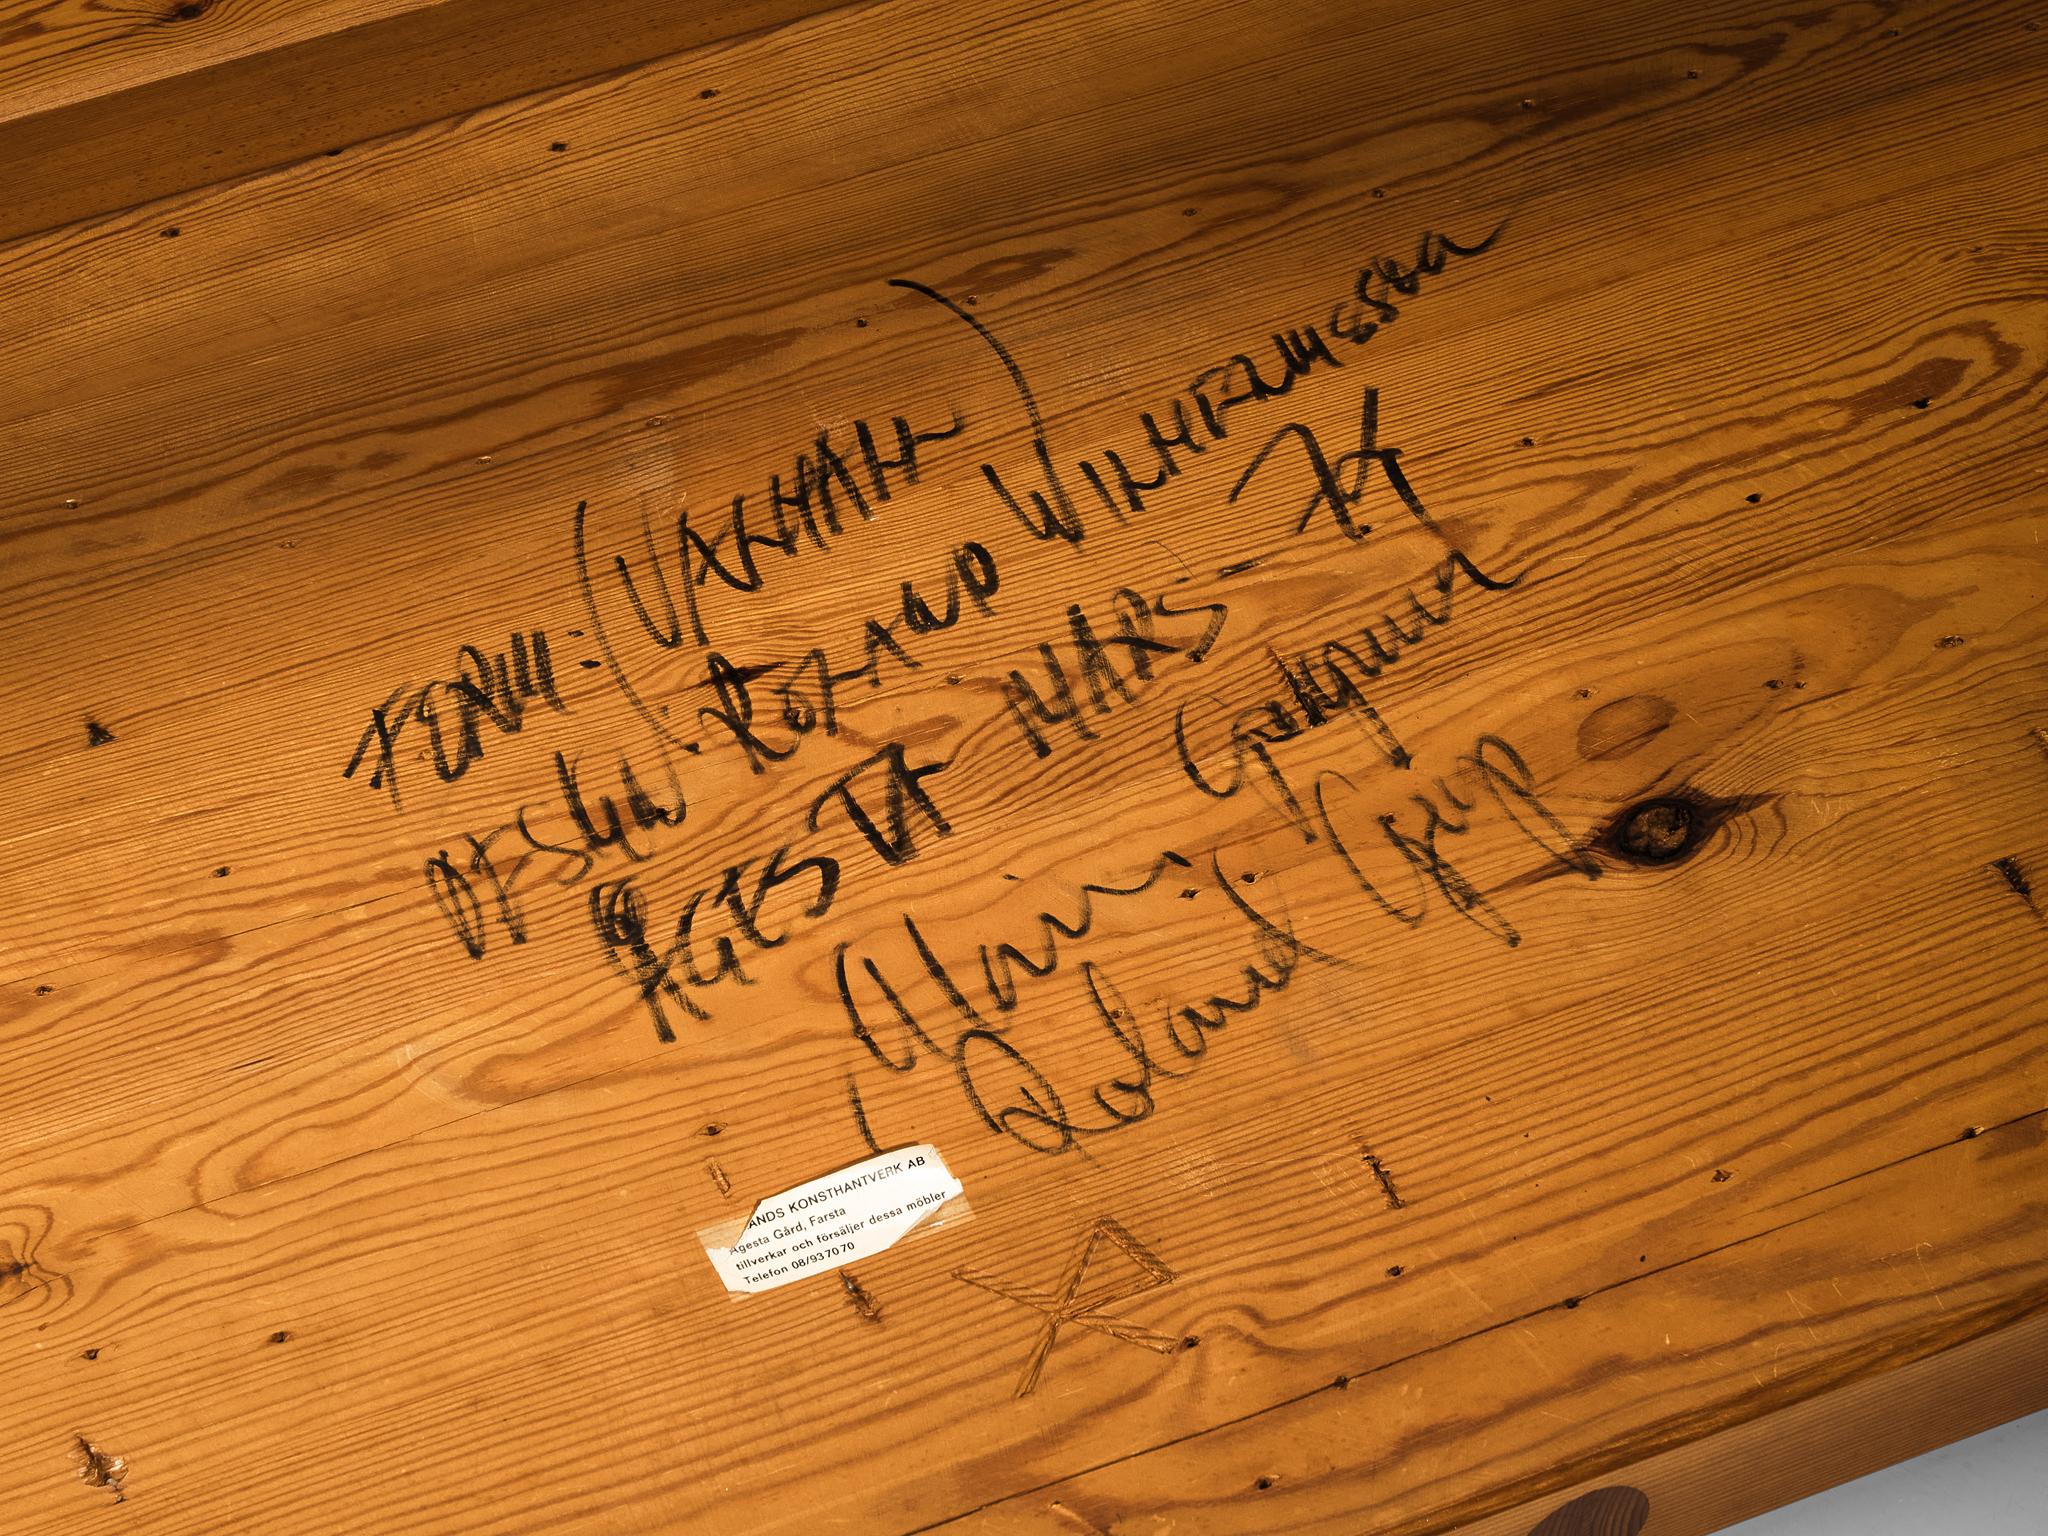 FORM: (VALHALL)
DESIGN: ROLAND WILHELMSSON
ÅGESTA MARS - 74
Roland
ANDS KONSTHANTVERK AB
Ågesta Gård, Farsta
tillverkar och försäljer dessa möbler
Telefon 08/937070